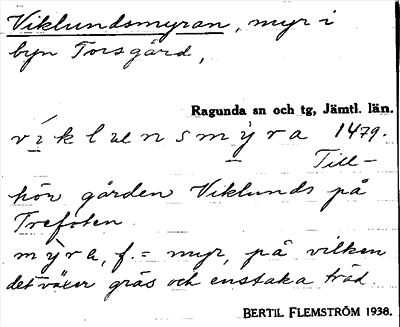 Viklundsmyran, myr i
byn Torsgård,
Ragunda sn och tg, Jämtl. län.
víkluensmỳra 1479.
Till-
hör gården Viklunds på
Trefoten
mỳra, f. = myr, på vilken
det växer gräs och enstaka träd.
BERTIL FLEMSTRÖM 1938.